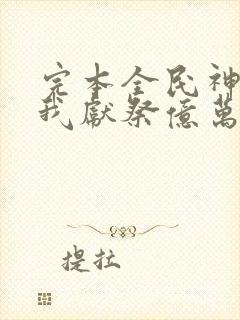 完本全民神
我獻祭億萬
提拉